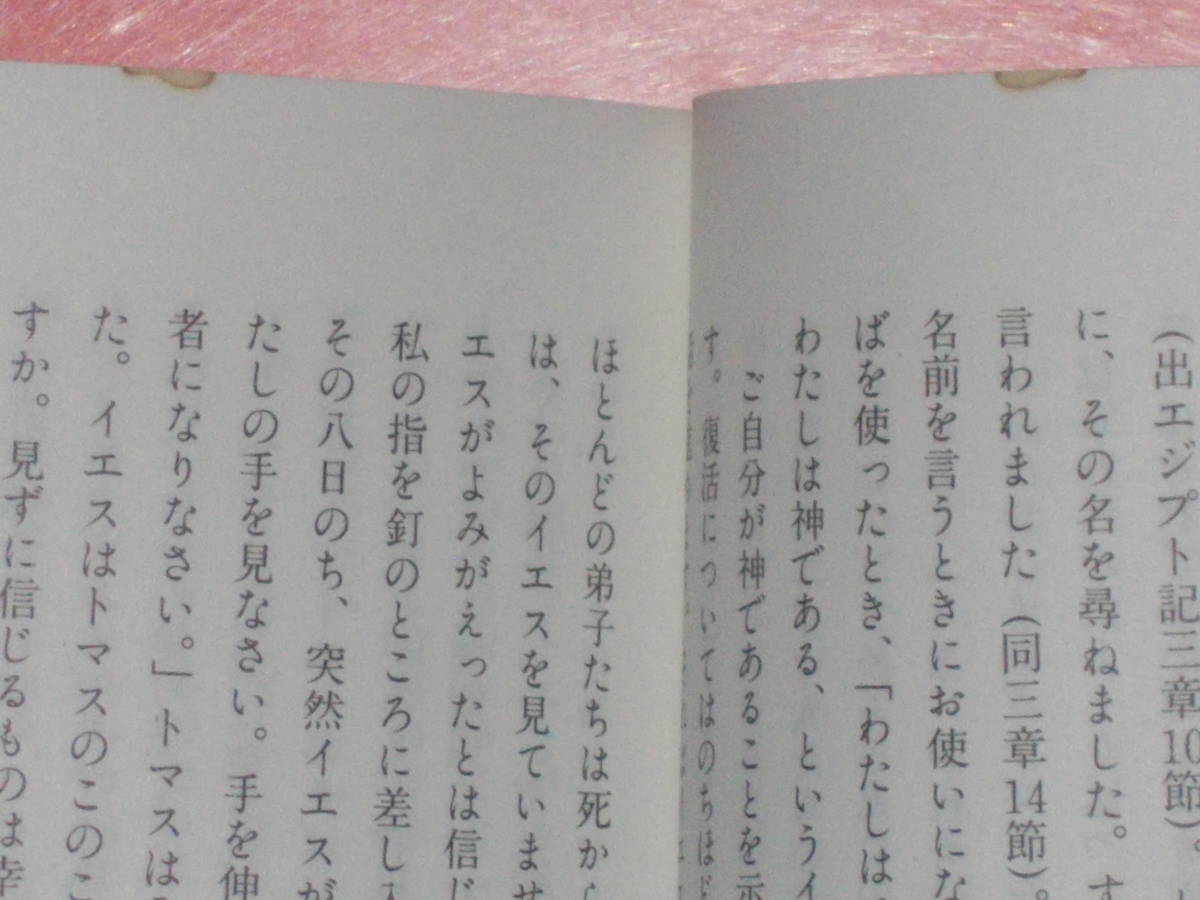 (出エジプト記三章10節)。
に、その名を尋ねました。す
言われました(同三章14節)。
名前を言うときにお使いにな
ばを使ったとき、「わたしは
わたしは神である、というイ
ご自分が神であることを示
す。復活についてはのちほど
ほとんどの弟子たちは死から
は、そのイエスを見ていませ
エスがよみがえったとは信じ
私の指を釘のところに差し入
その八日のち、突然イエスが
たしの手を見なさい。手を伸
者になりなさい。」トマスは
た。イエスはトマスのこのこ
すか。見ずに信じるものは幸